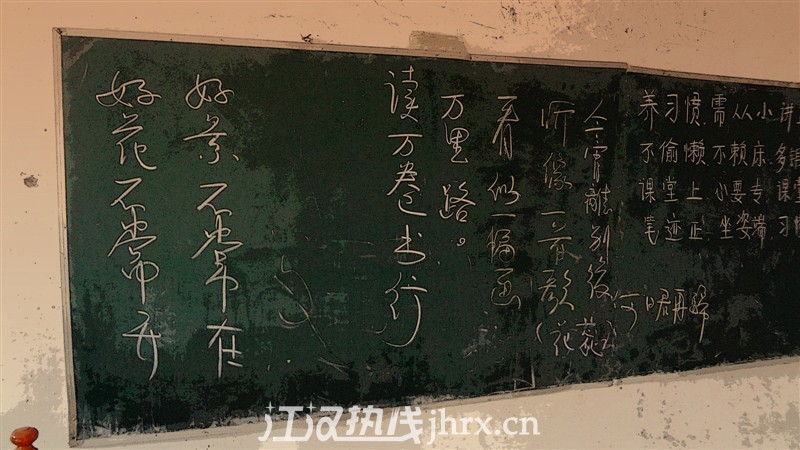 好花不常开
好景不常在
读万卷书行
万里路。
看似一幅画
听像一首歌
今宵離别後
何日君再歸
养习惯 需从小 讲
不偷懒 不赖床 多
课堂上 小耍专 课堂
笔迹正 坐姿端 习惯
江汉热线jhrx.cn